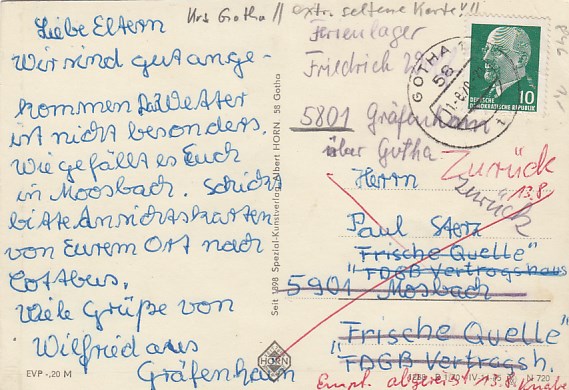 Krs Gotha // extr. seltene Karte!!
Liebe Eltern
Wir sind gut ange-
kommen. Wetter
ist nicht besonders.
Wie gefällt es Euch
in Moosbach. Schickt
bitte Ansichtskarten
von Eurem Ort nach
Cottbus.
Viele Grüße von
Wilfried aus
Gräfenhain
EVP -,20 M
Seit 1898 Spezial-Kunstverlag Albert HORN, 58 Gotha
HORN
Ferienlager
Friedrich
5801 Gräfenhain
über Gotha
GOTHA
58
DEUTSCHE
DEMOKRATISCHE REPUBLIK
10
Zurück
13.8.
zurück
Herrn
Paul
"Frische Quelle"
"FDGB Vertragshaus
5901 Mosbach
"Frische Quelle"
FDGB Vertragsh.
Empf. abgereist 13.8.